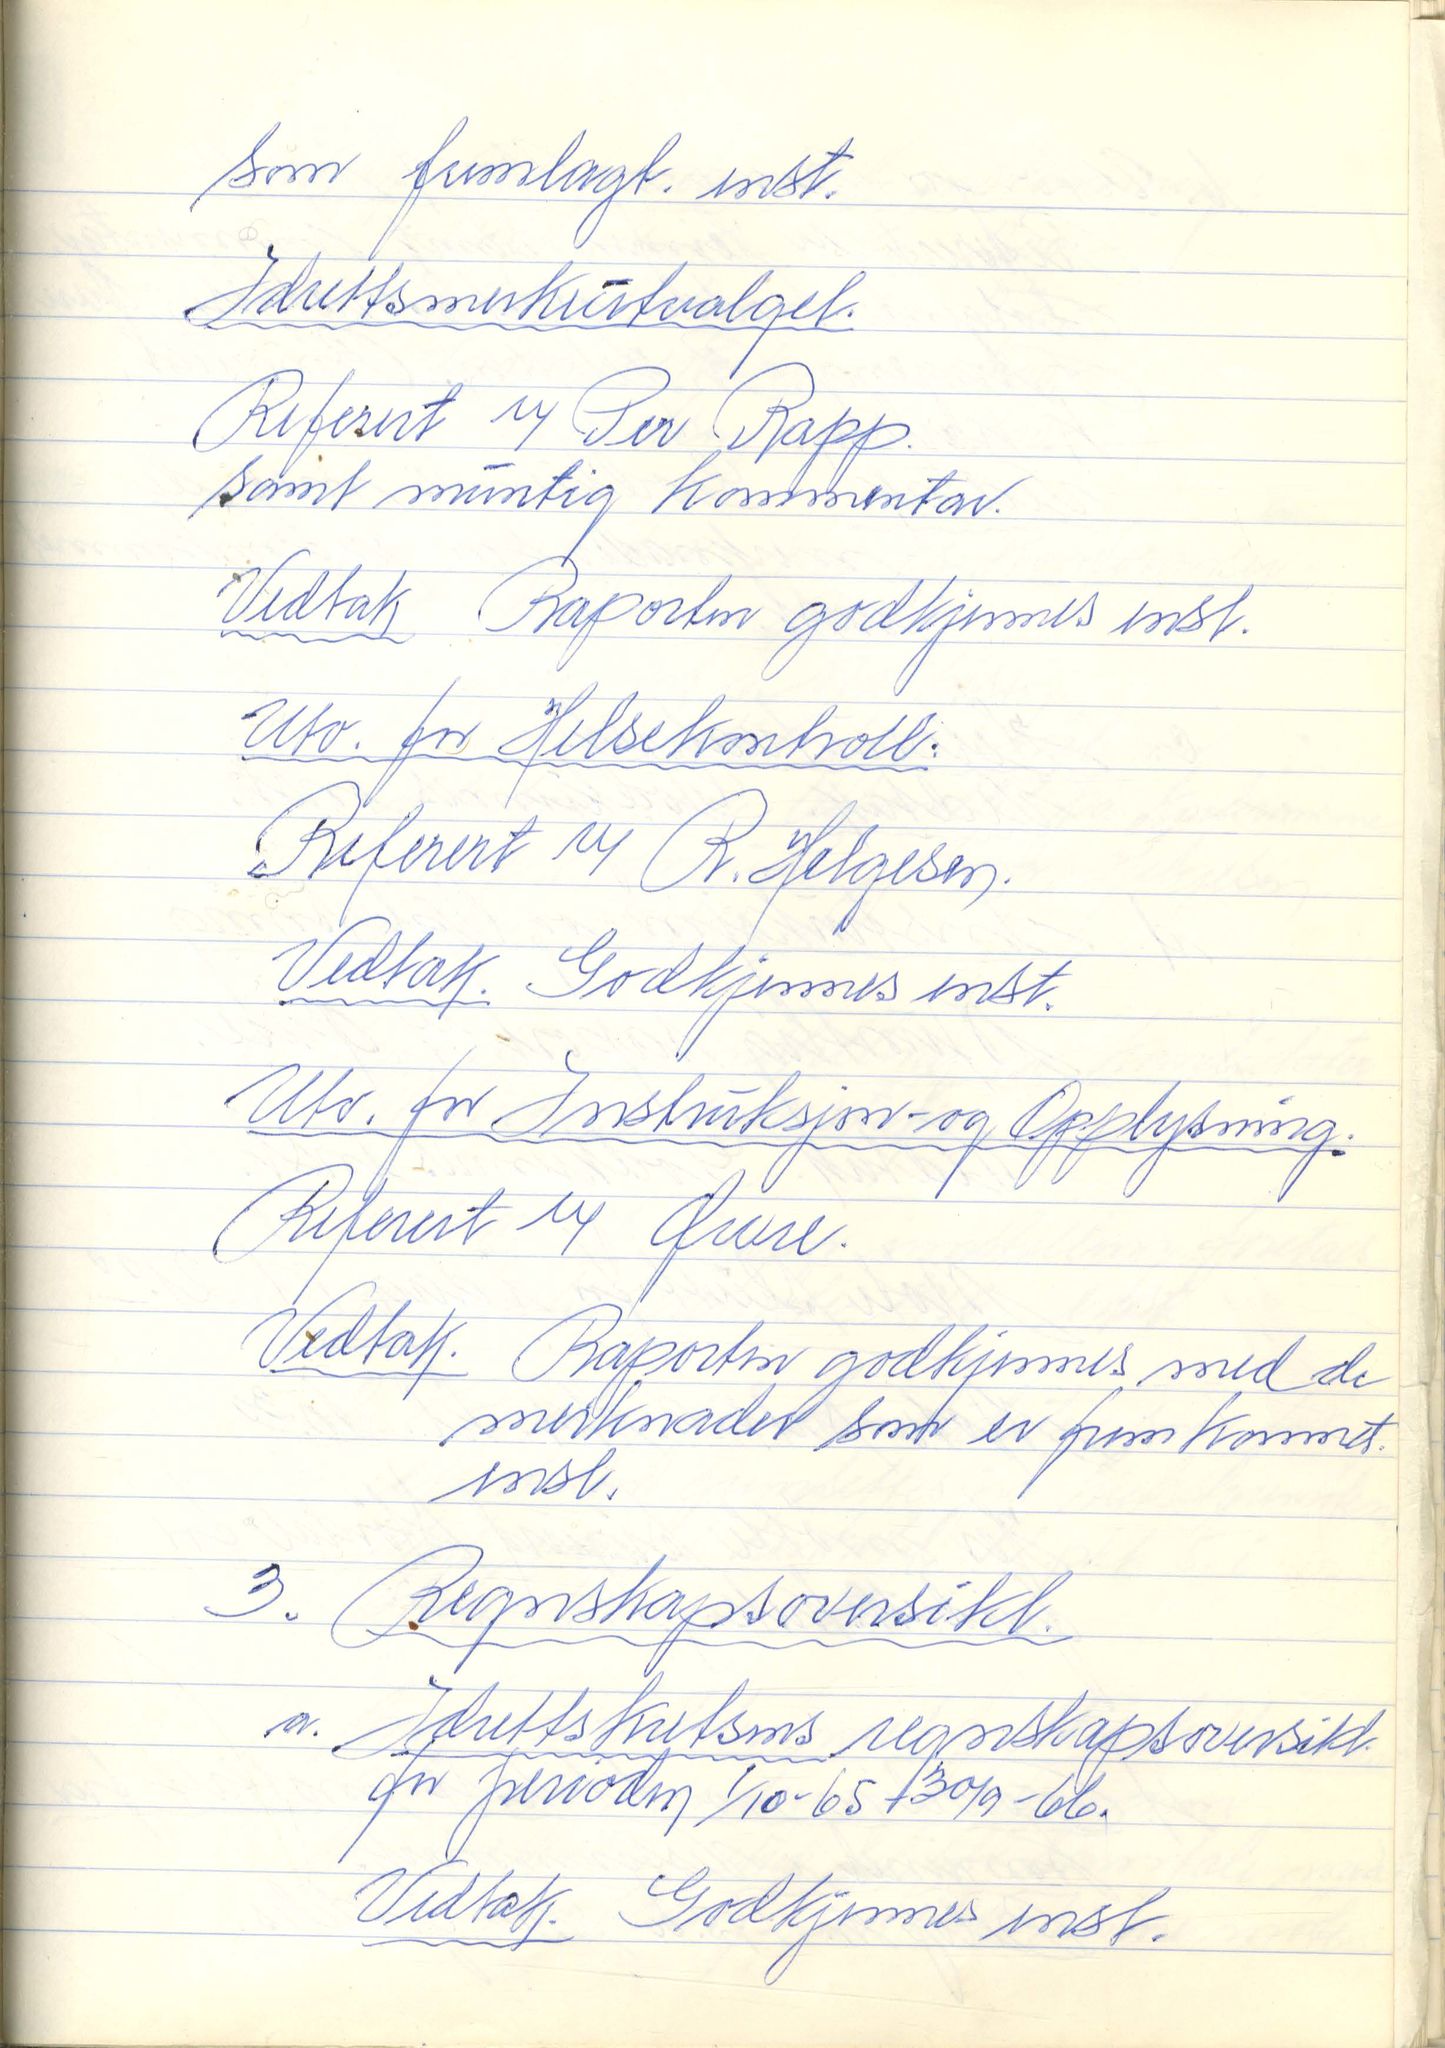 som fremlagt. enst.
Idrettsmerkeutvalget.
Referert v/ Per Rapp.
samt muntlig kommentar.
Vedtak Raporten godkjennes enst.
Utv. for Helsekontroll.
Referert v/ R. Helgesen.
Vedtak. Godkjennes enst.
Utv. for Instruksjon- og Opplysning.
Referert v/
Vedtak. Raporten godkjennes med de
merknader som er fremkommet.
enst.
3. Regnskapsoversikt.
a. Idrettskretsens regnskapsoversikt.
for perioden 1/10-65 ÷ 30/9-66.
Vedtak. Godkjennes enst.